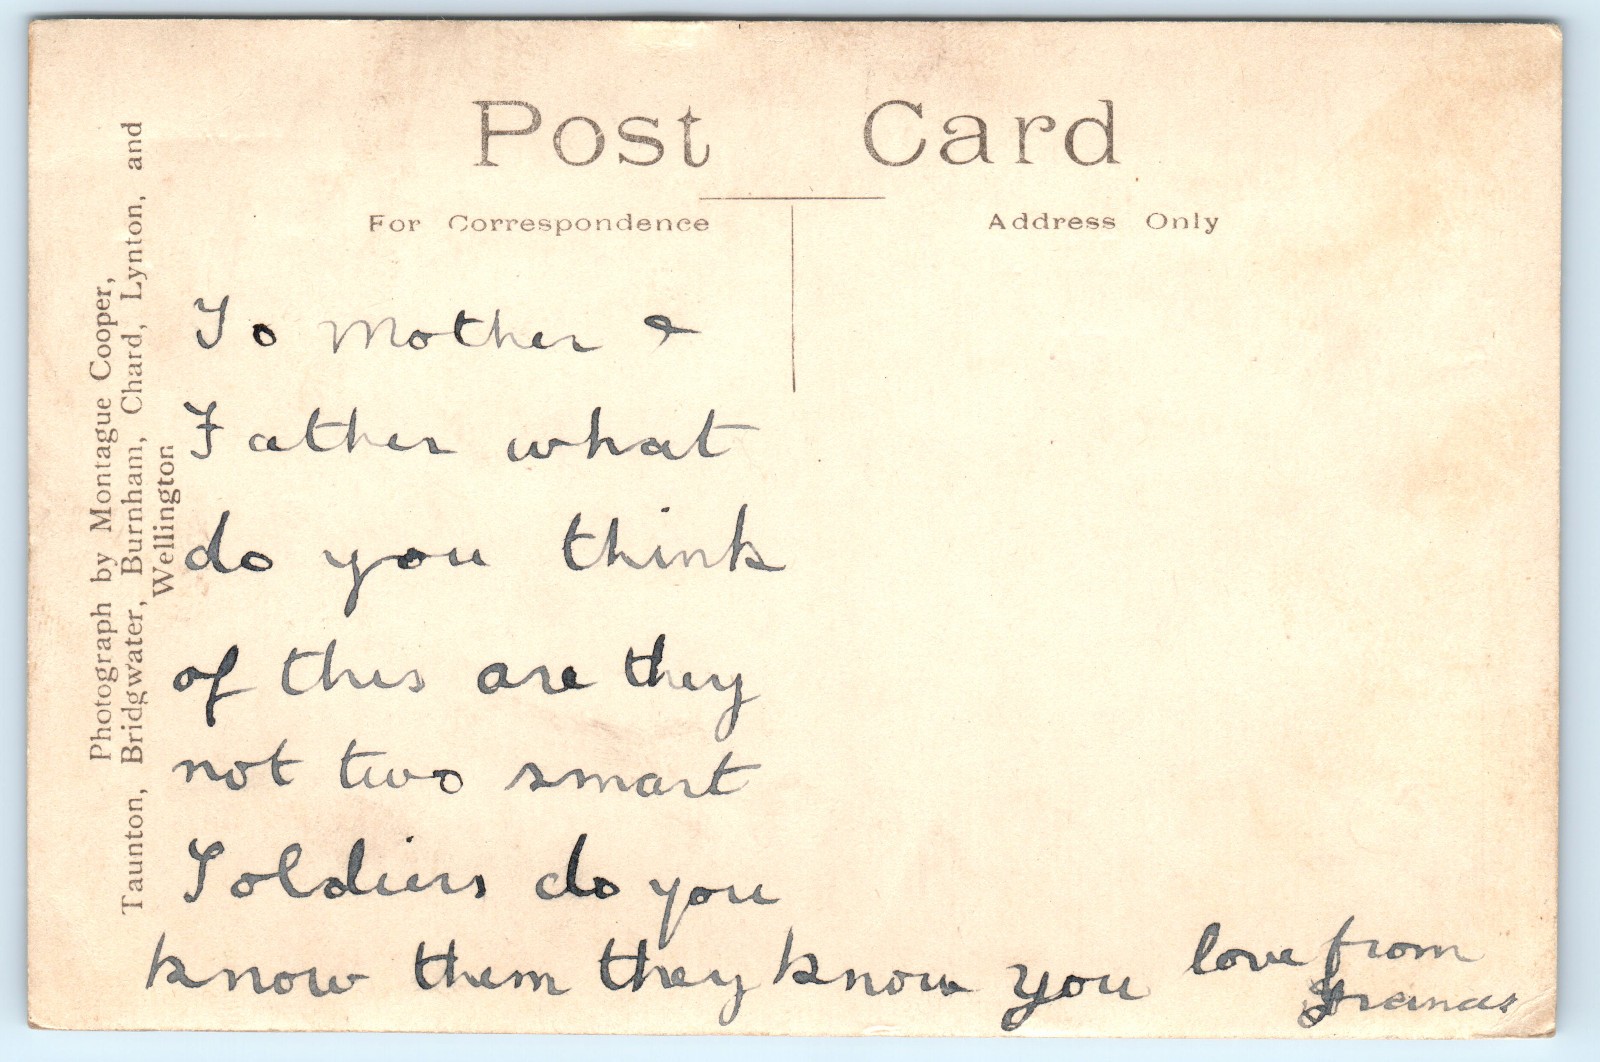 Post Card
For Correspondence
Address Only
Photograph by Montague Cooper,
Taunton, Bridgwater, Burnham, Chard, Lynton, and
Wellington
To Mother &
Father what
do you think
of this are they
not two smart
Soldiers do you
know them they know you love from
Francis